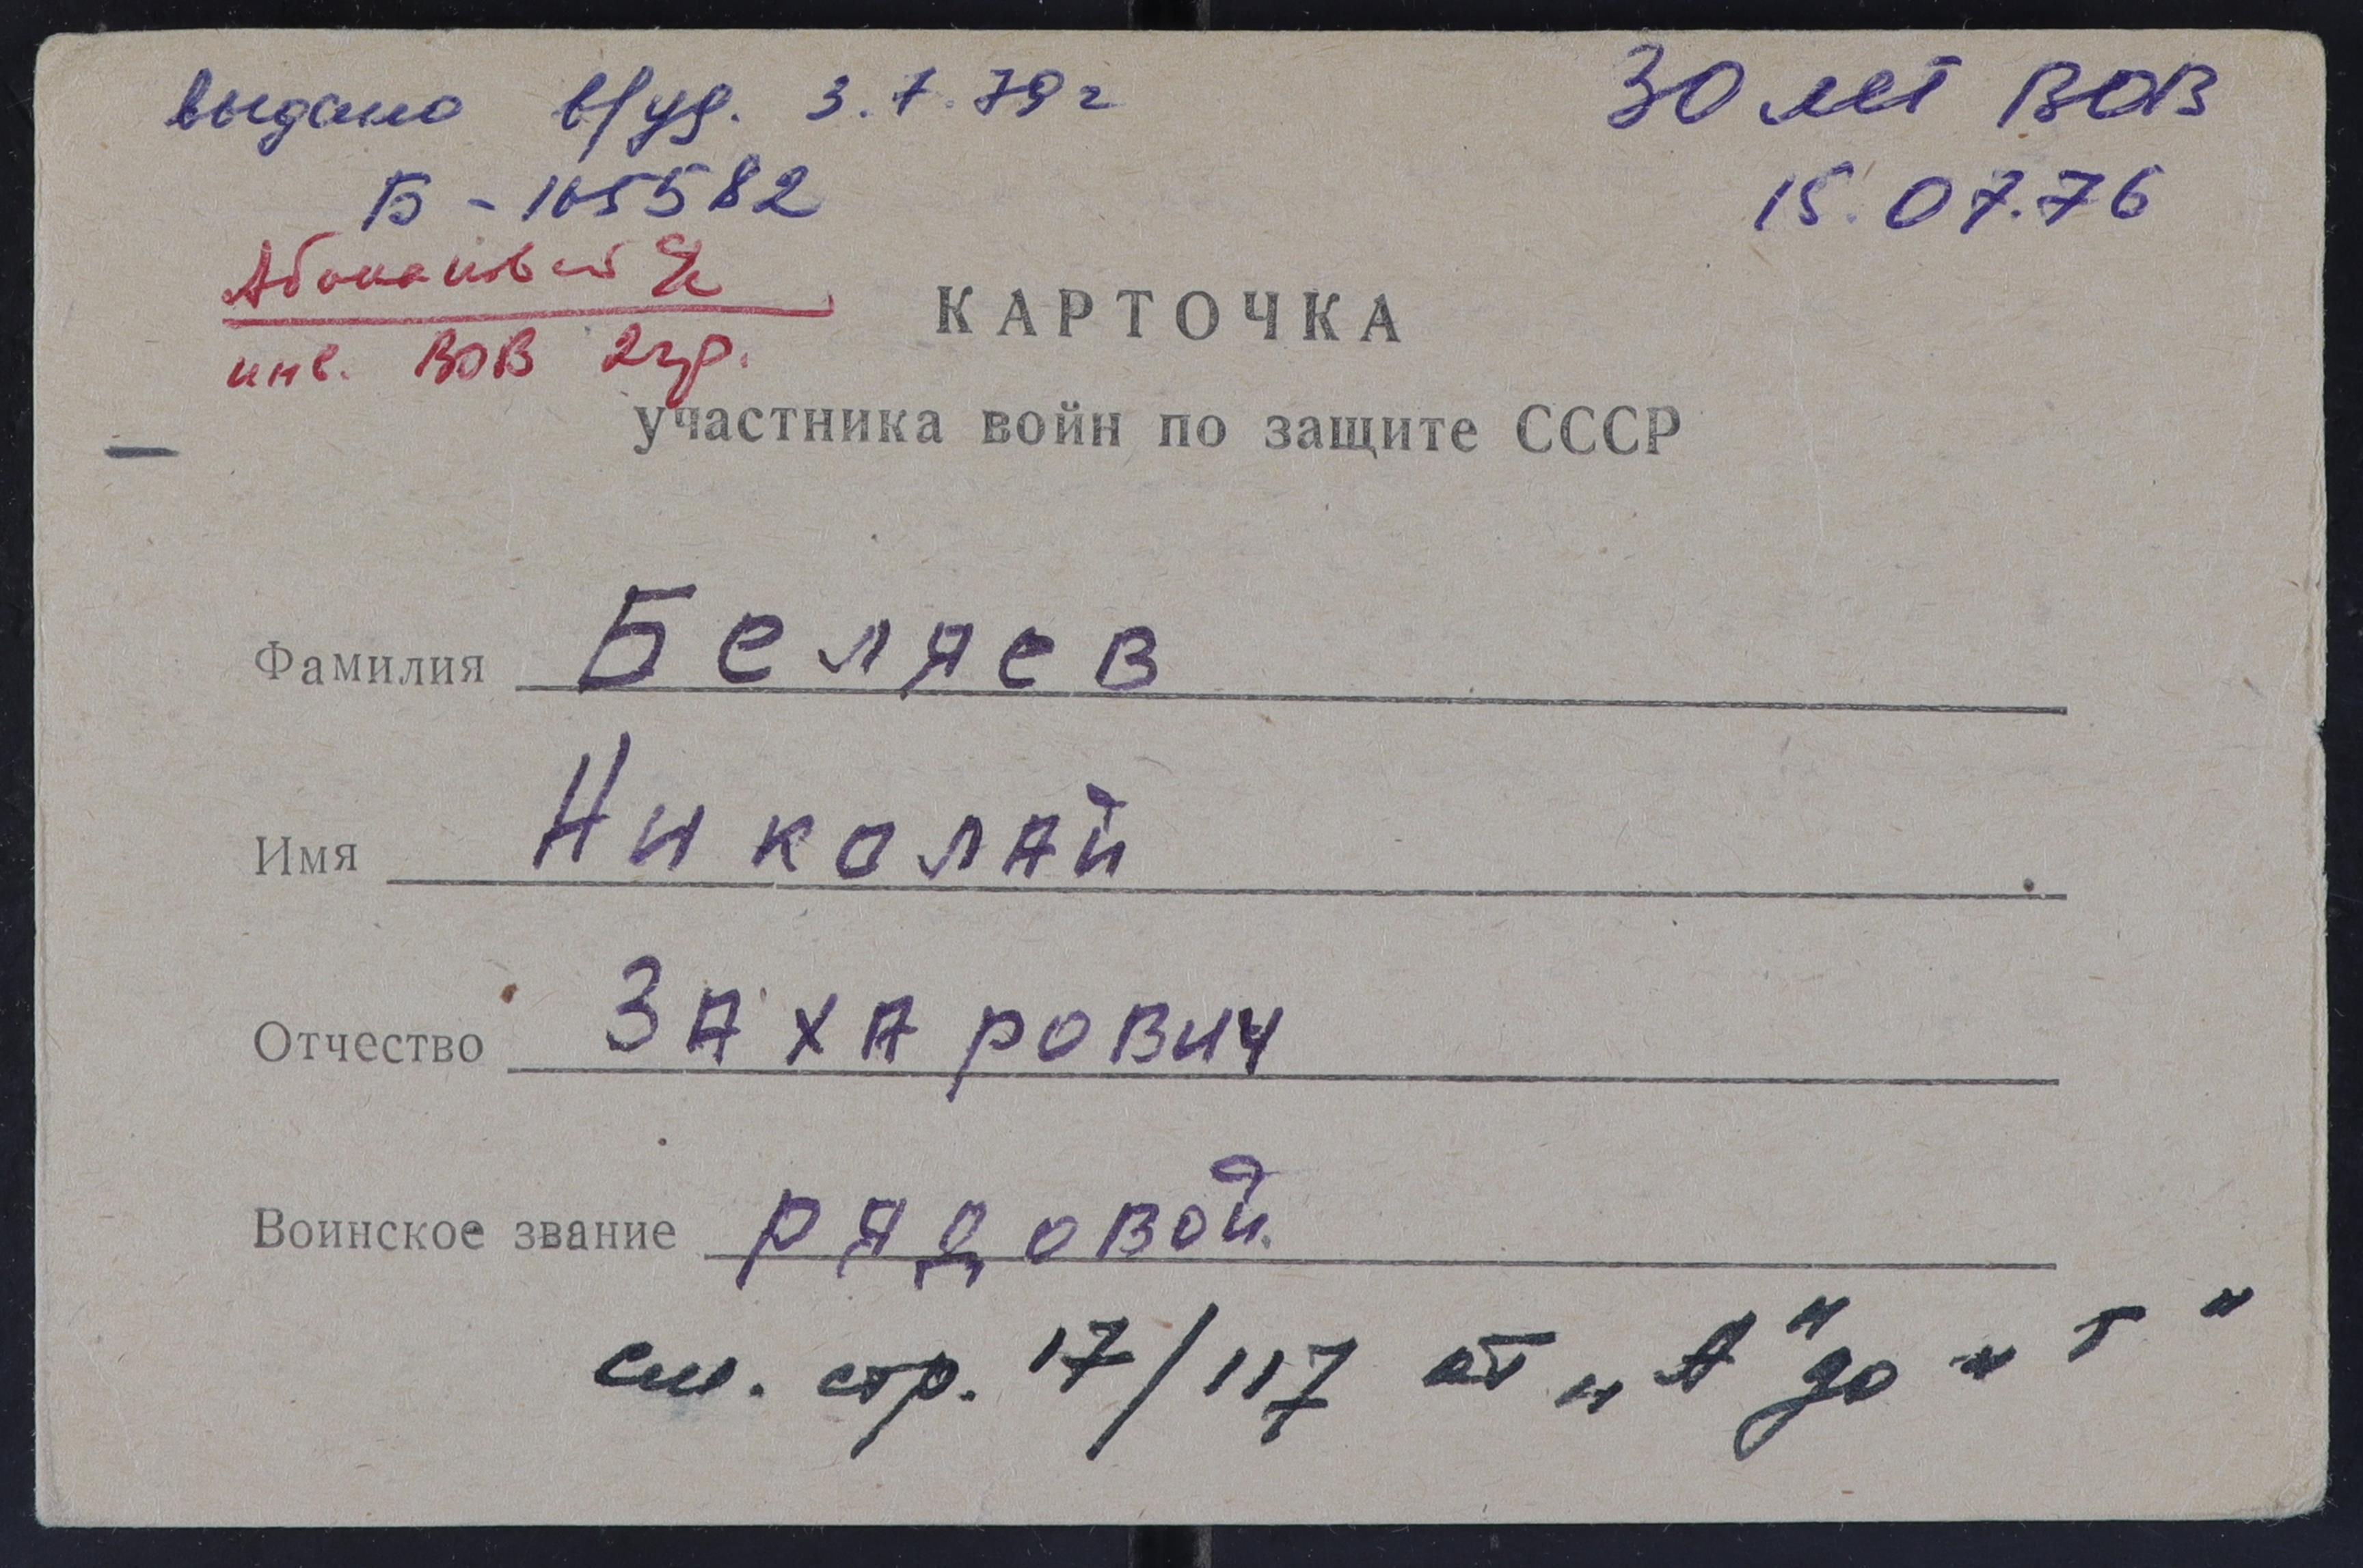 выдано в/уд. 3.7.79г
Б-165582
30 лет ВОВ
15.07.76
инв. ВОВ 2гр.
КАРТОЧКА
участника войн по защите СССР
Фамилия Беляев
Имя Николай
Отчество Захарович
Воинское звание рядовой.
см. стр. 17/117 от „А" до „Г"